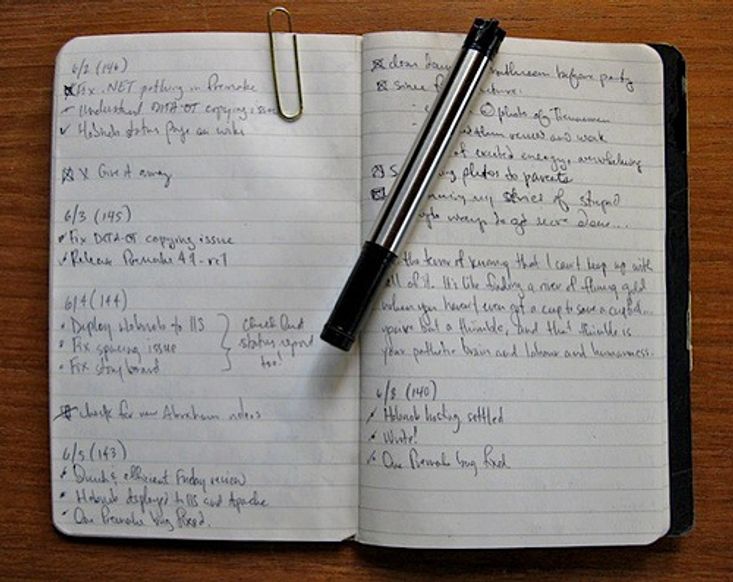 6/2 (146)
Fix .NET pathing in Premake
Understand DITA-OT copying issue
Hobnob status page on wiki
Give it away
6/3 (145)
Fix DITA-OT copying issue
Release Premake 4.1-rc1
6/4 (144)
Deploy Hobnob to IIS
Fix spacing issue
Fix storyboard
Check out
status report
too!
Check for new Abraham videos
6/5 (143)
Quick & efficient Friday review
Hobnob deployed to IIS and Apache
One Premake bug fixed.
clean before party
since
photo of
review and work
of excited energy,
photos to parents
my series of stupid
ways to get more done...
the terror of knowing that I can't keep up with
all of it. It's like finding a river of flowing gold
when you haven't even got a cup to save a cupful...
you've but a thimble, and that thimble is
your pathetic brain and labour and humanness.
6/8 (140)
Hobnob hosting settled
Write!
One Premake bug fixed